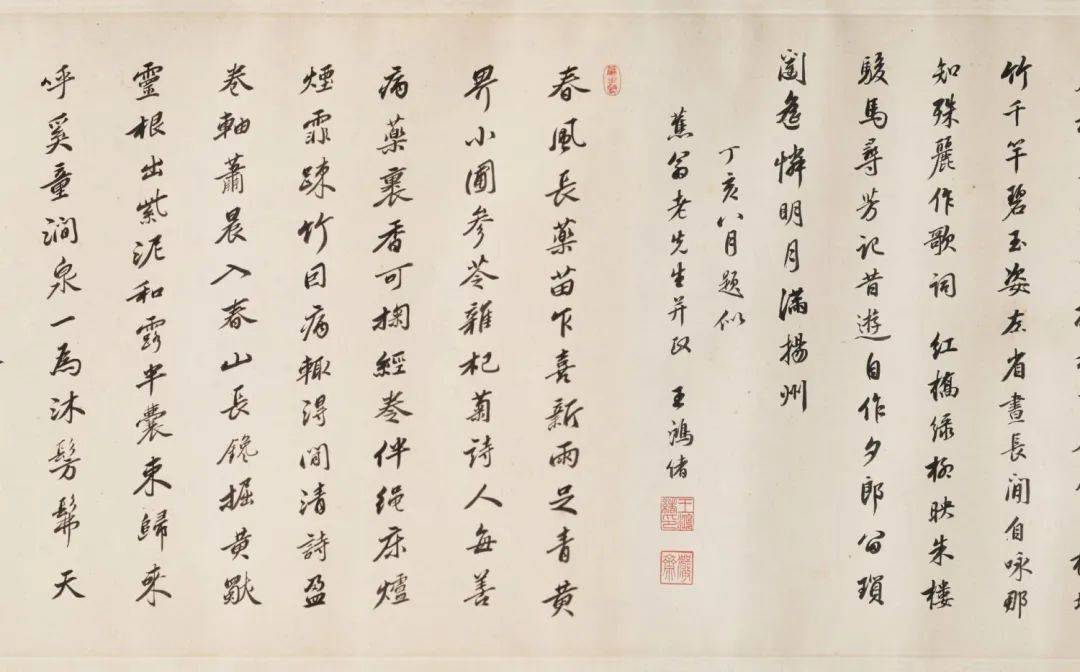 竹千竿碧玉姿左省晝長閒自咏那
知殊麗作歌詞 红橋绿柳映朱楼
駿馬尋芳记昔遊自作夕郎留瑣
闥遙憐明月滿揚州
丁亥八月题似
蕉翁老先生并政 王鴻緒
春風長藥苗乍喜新雨足青黄
界小圃參苓雜杞菊詩人每善
病藥裹香可掬經卷伴绳床爐
煙霏踈竹因病輙得閒清詩盈
卷軸蕭晨入春山長鑱掘黄獨
靈根出紫泥和露半囊束歸來
呼奚童澗泉一為沐髣髴天